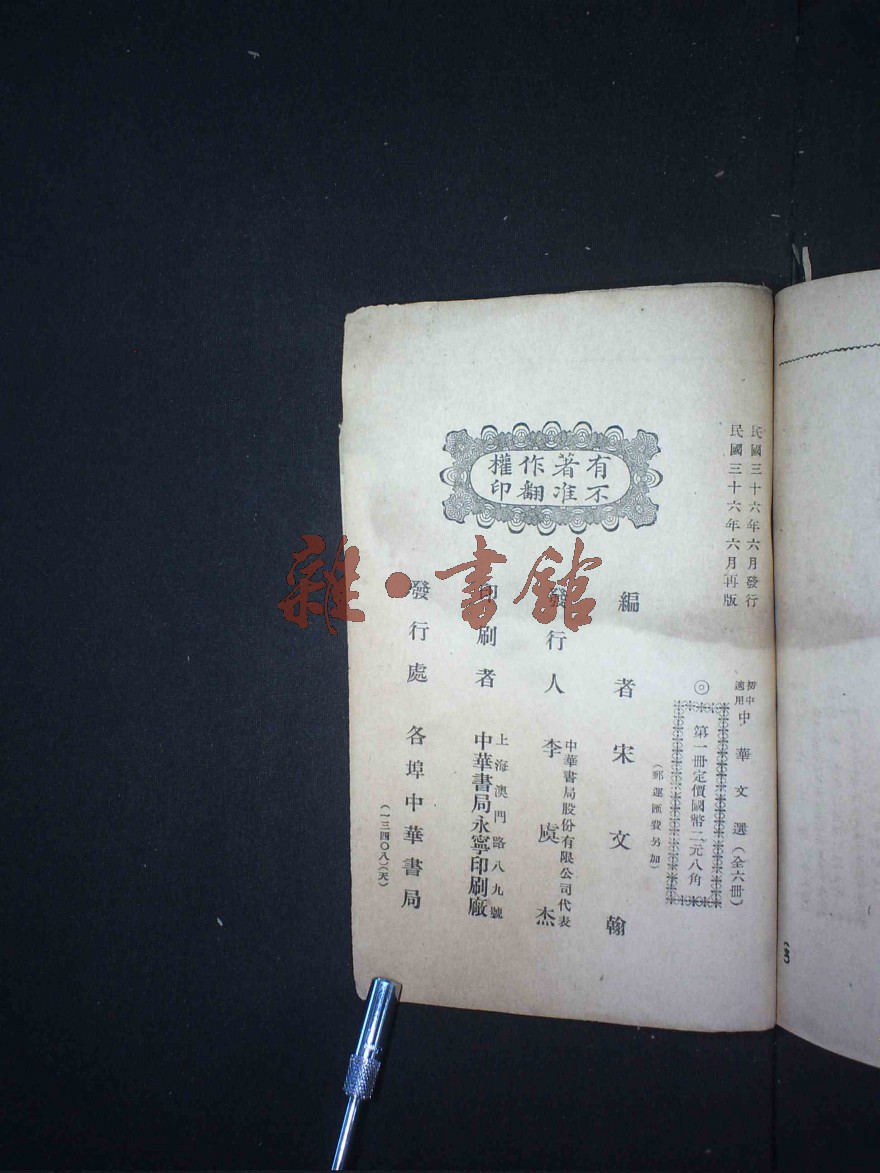 民國三十六年六月發行
民國三十六年六月再版
初中適用 中華文選（全六冊）
◎ 第一冊定價國幣二元八角
（郵運匯費另加）
有著作權
不准翻印
編者 宋文翰
發行人 李虞杰
中華書局股份有限公司代表
印刷者 中華書局永寧印刷廠
上海澳門路八九號
發行處 各埠中華書局
（一三四〇八）（天）
雜·書館